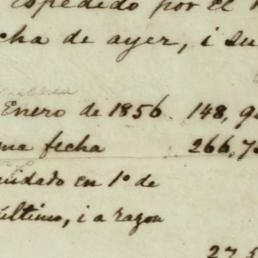 espedido por el
cha de ayer, i su
Enero de 1856. 148,9
ma fecha 266,7
uidado en 1º de
último, i a razon
27 5